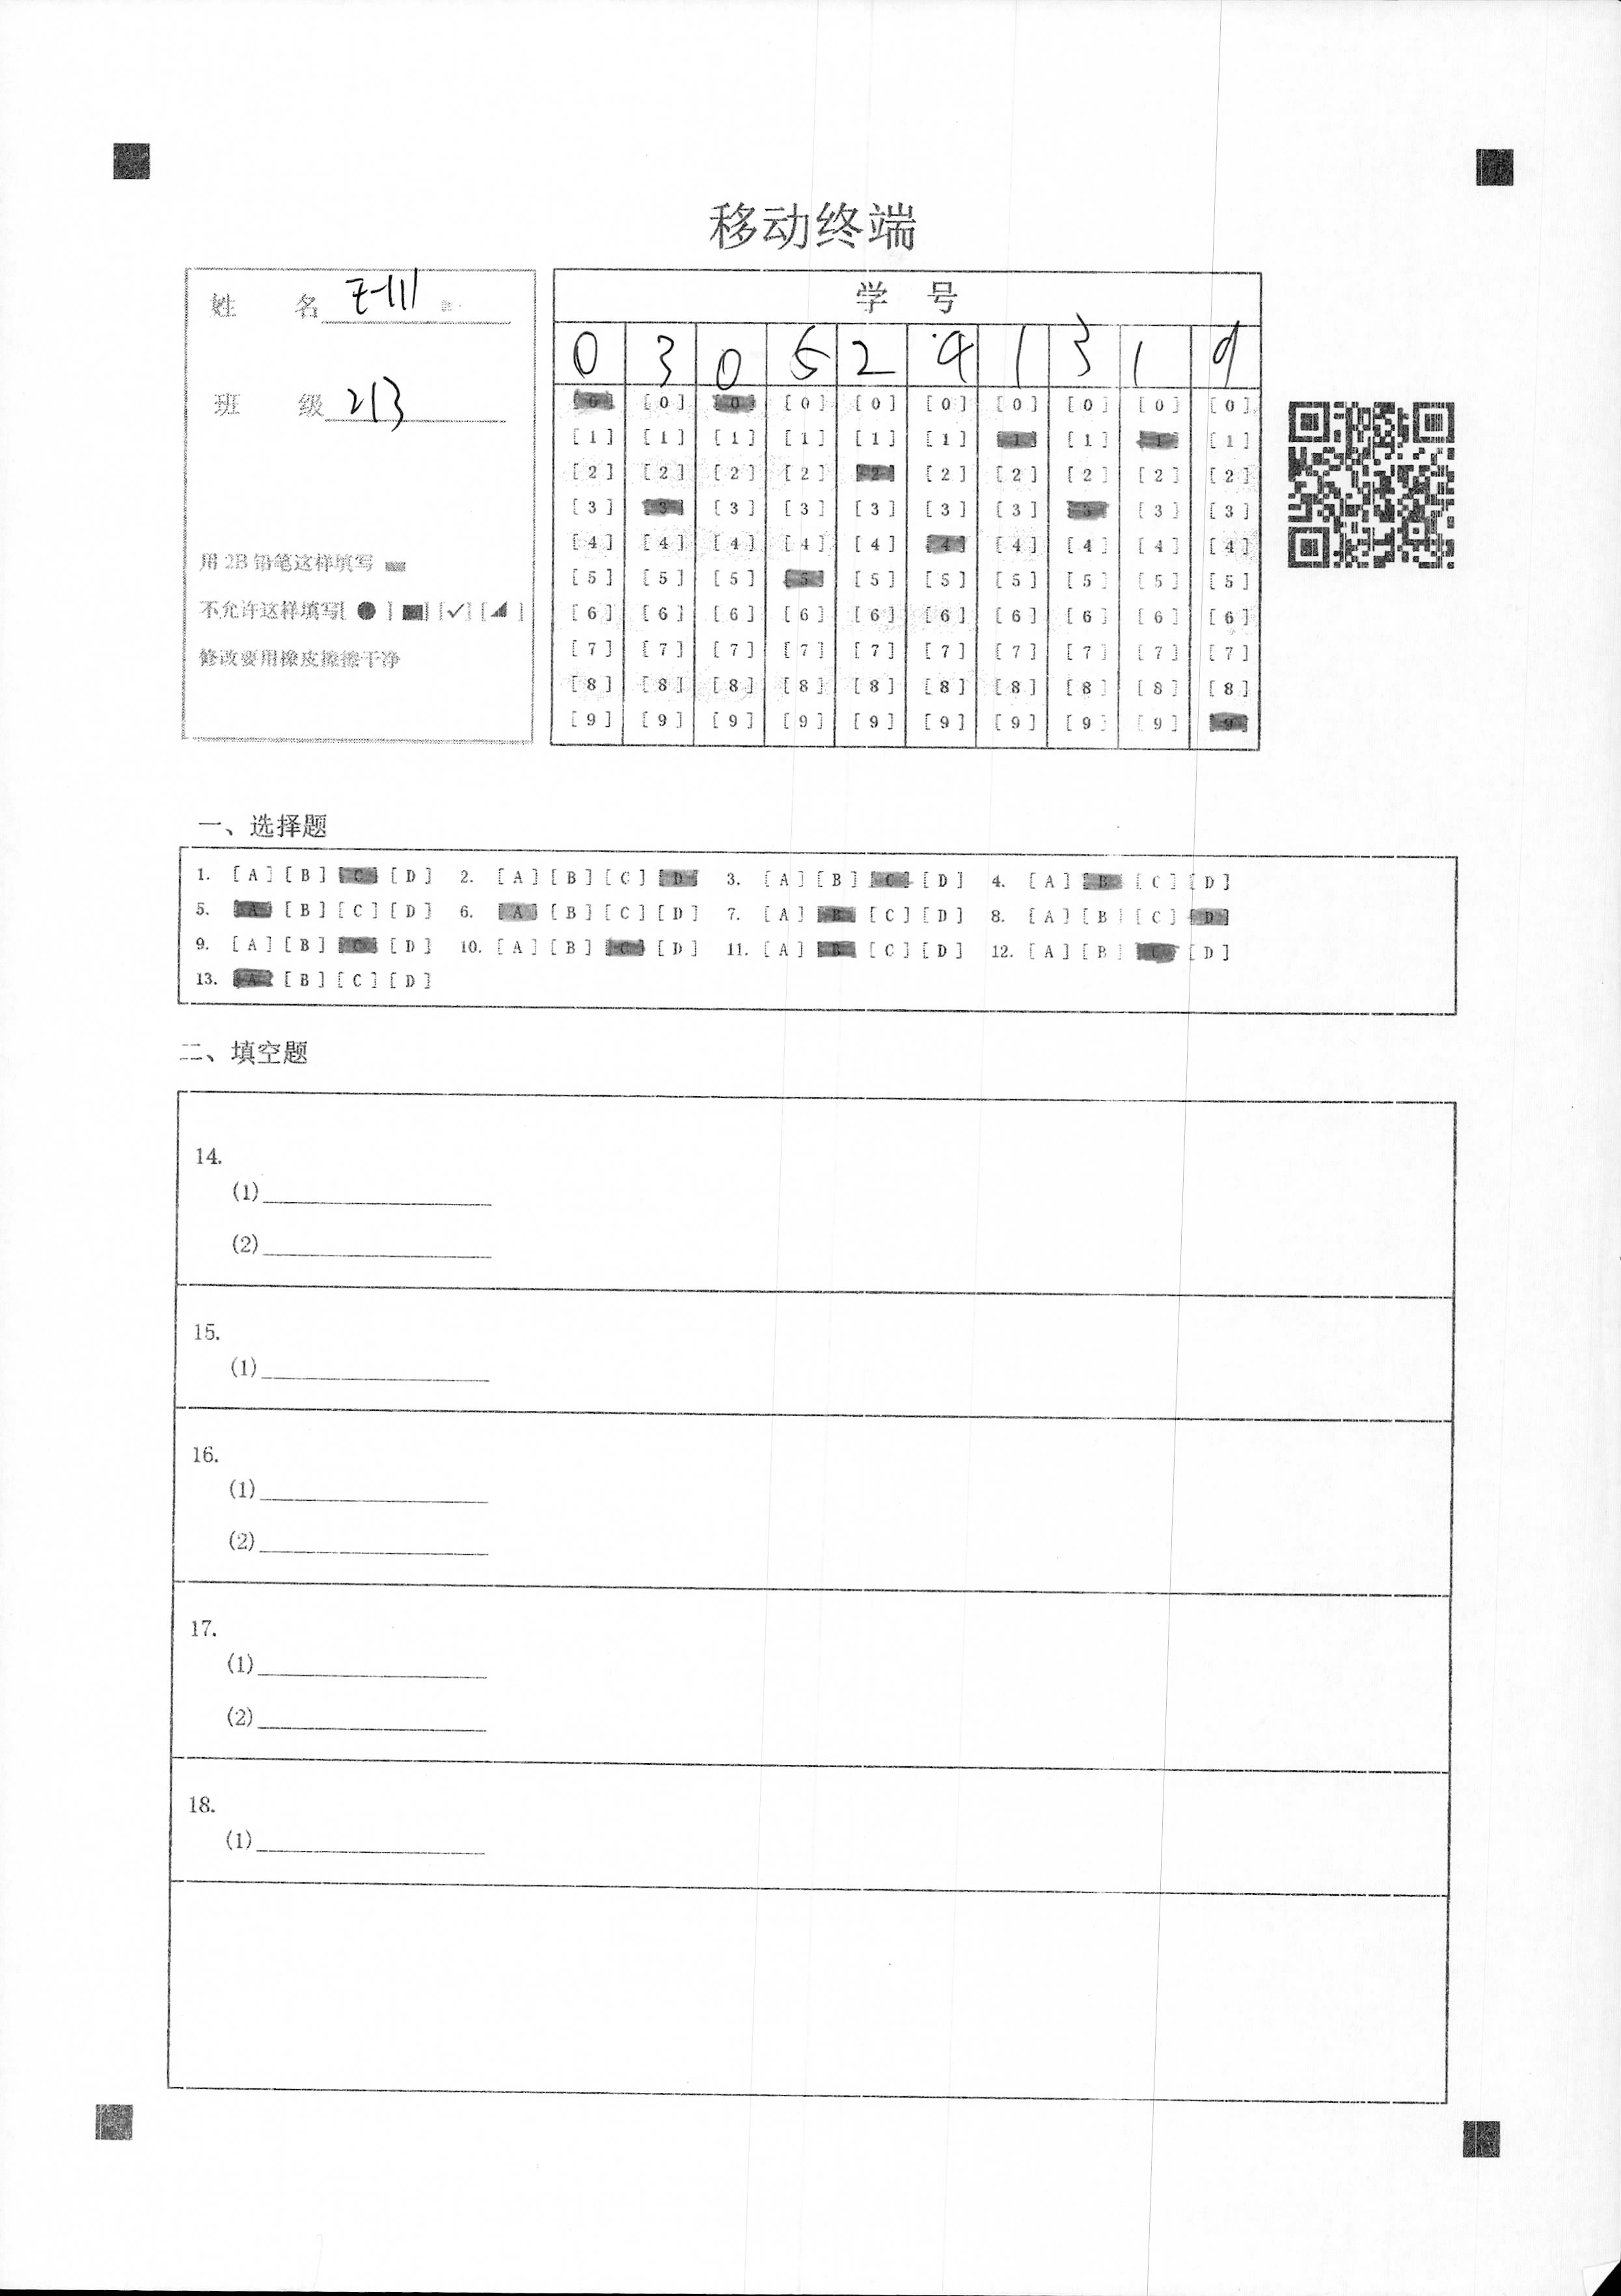 移动终端
姓 名
班 级 213
用 2B 铅笔这样填写
不允许这样填写[ ● ] [■] [✓] [◢ ]
修改要用橡皮擦擦干净
学 号
0 3 0 5 2 4 1 3 1 9
[0] [0] [0] [0] [0] [0] [0] [0] [0] [0]
[1] [1] [1] [1] [1] [1] [1] [1] [1] [1]
[2] [2] [2] [2] [2] [2] [2] [2] [2] [2]
[3] [3] [3] [3] [3] [3] [3] [3] [3] [3]
[4] [4] [4] [4] [4] [4] [4] [4] [4] [4]
[5] [5] [5] [5] [5] [5] [5] [5] [5] [5]
[6] [6] [6] [6] [6] [6] [6] [6] [6] [6]
[7] [7] [7] [7] [7] [7] [7] [7] [7] [7]
[8] [8] [8] [8] [8] [8] [8] [8] [8] [8]
[9] [9] [9] [9] [9] [9] [9] [9] [9] [9]
一、选择题
1. [A] [B] [C] [D] 2. [A] [B] [C] [D] 3. [A] [B] [C] [D] 4. [A] [B] [C] [D]
5. [A] [B] [C] [D] 6. [A] [B] [C] [D] 7. [A] [B] [C] [D] 8. [A] [B] [C] [D]
9. [A] [B] [C] [D] 10. [A] [B] [C] [D] 11. [A] [B] [C] [D] 12. [A] [B] [C] [D]
13. [A] [B] [C] [D]
二、填空题
14.
(1)
(2)
15.
(1)
16.
(1)
(2)
17.
(1)
(2)
18.
(1)